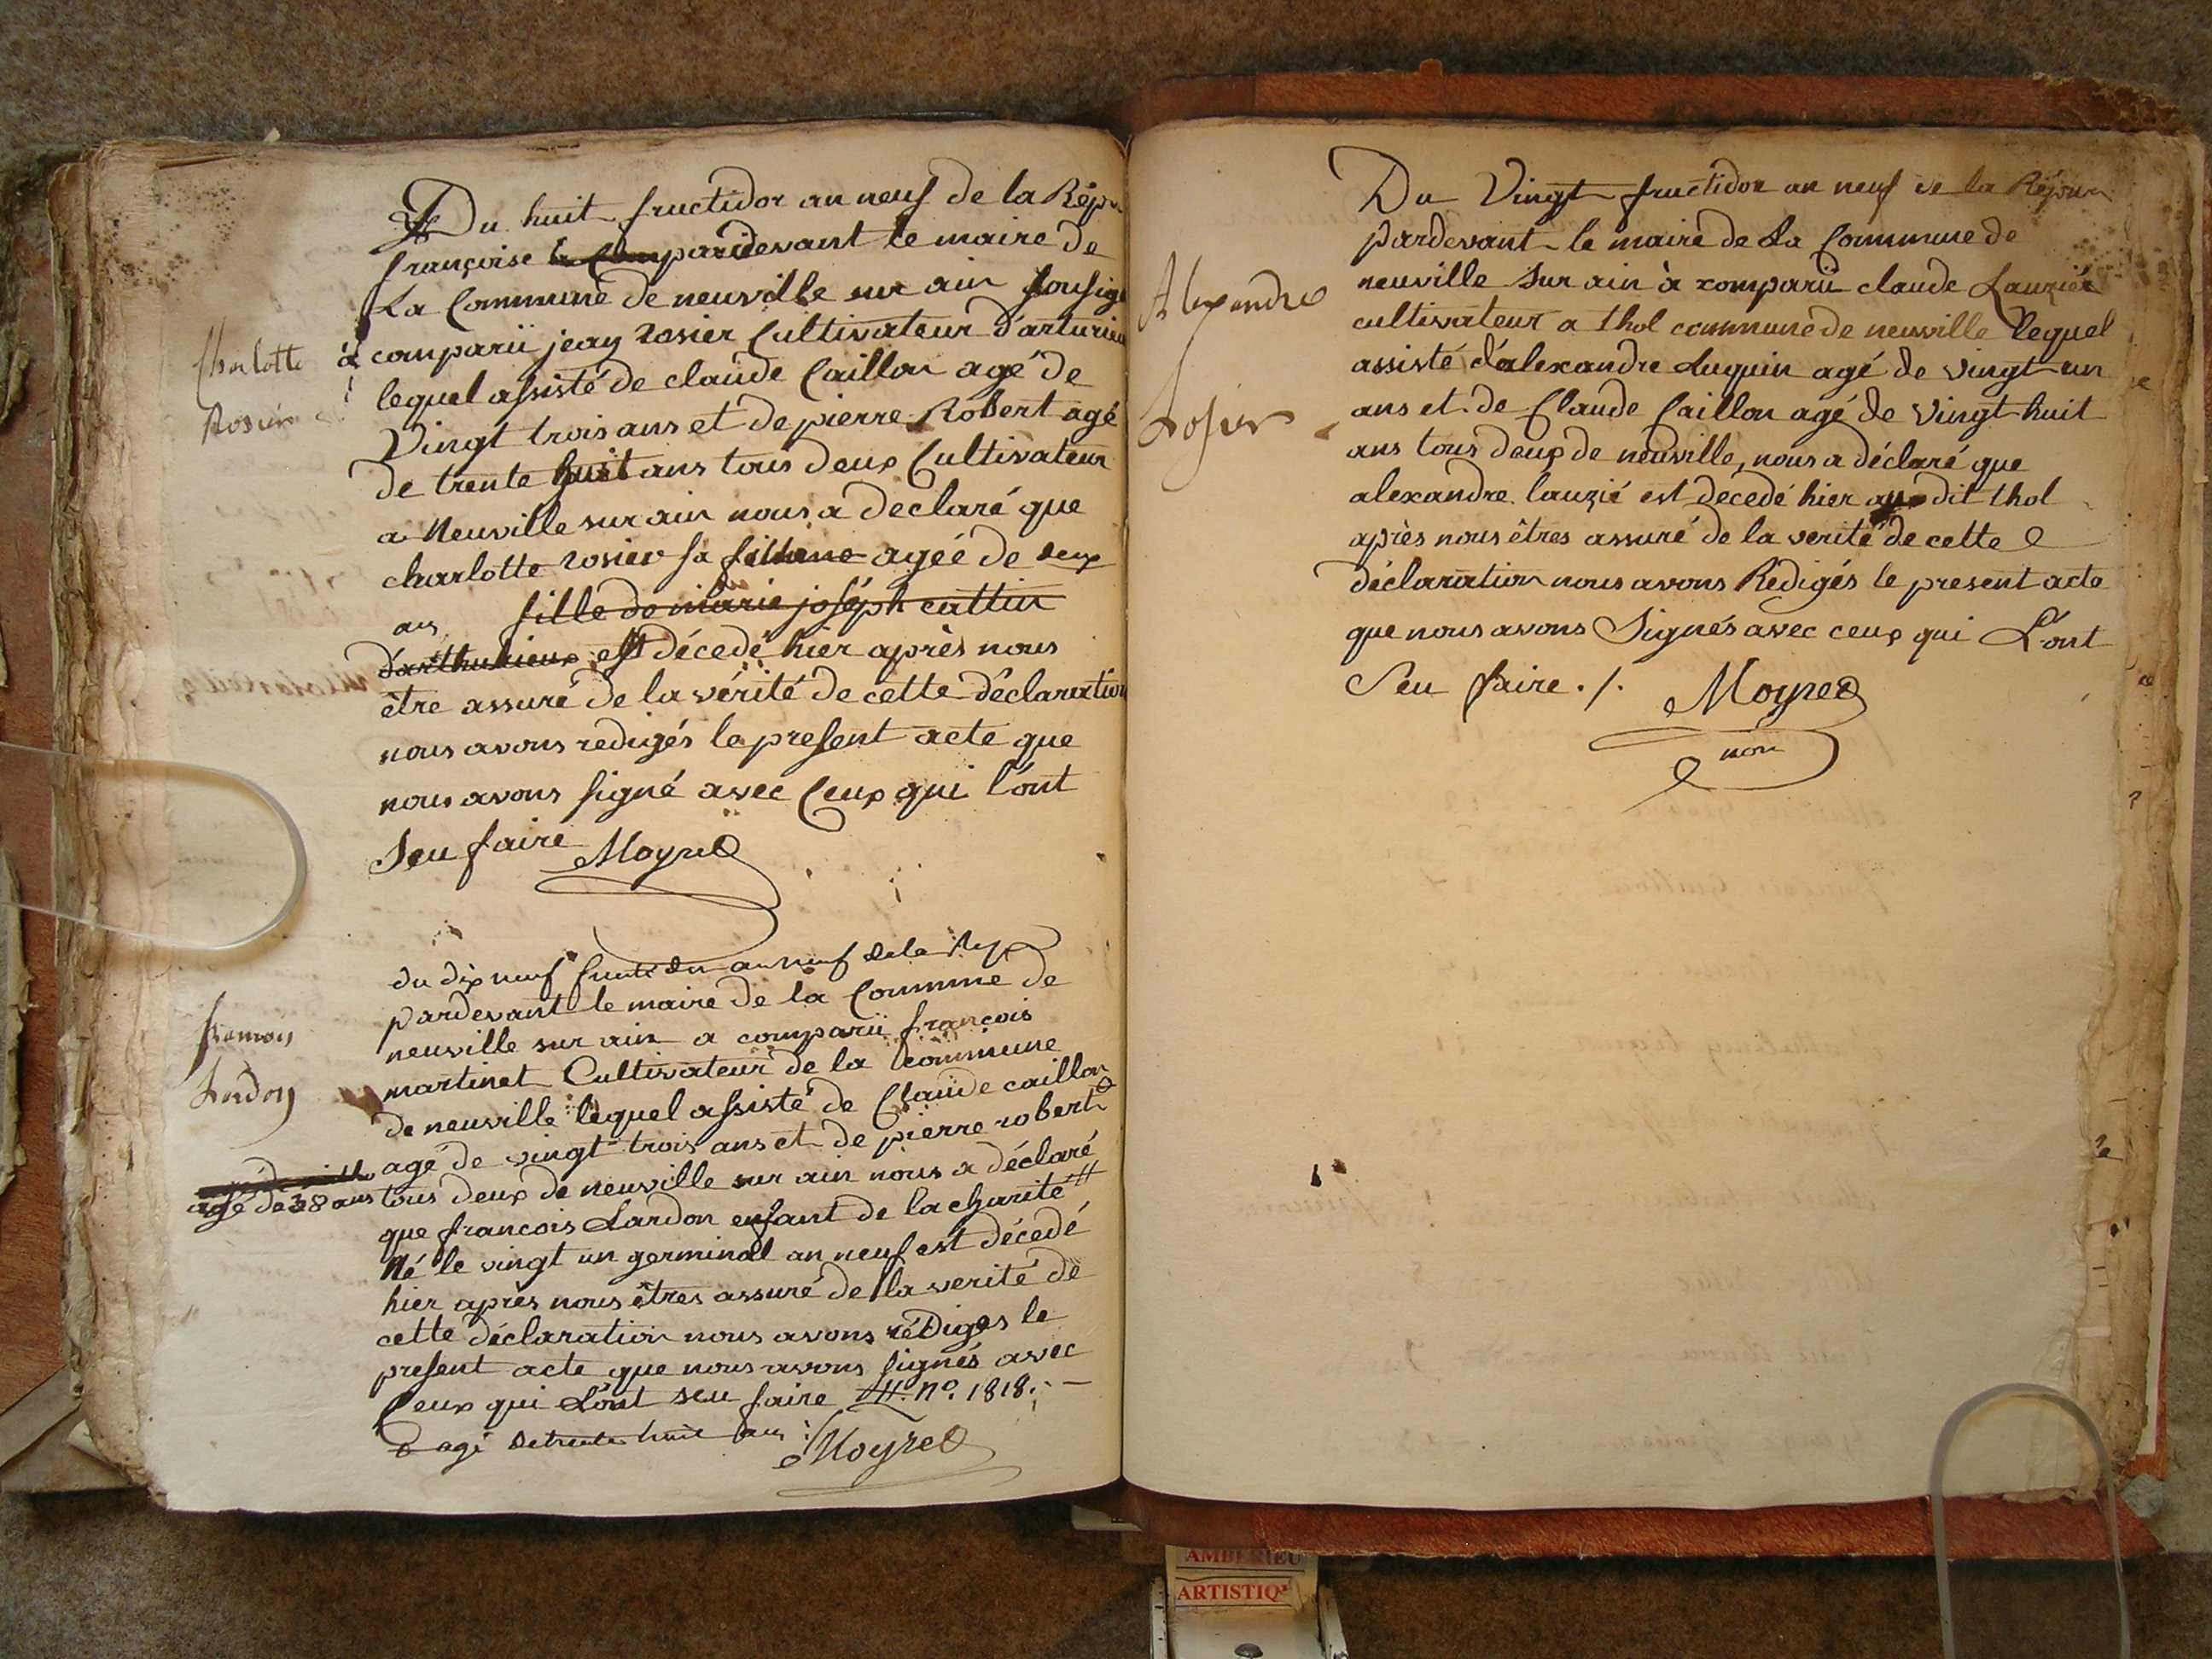 Charlotte
Rosier
Du huit fructidor an neuf de la Répu
françoise pardevant le maire de
La Commune de neuville sur ain sousig
à comparü jean rosier Cultivateur d'arturieu
lequel assisté de claude Caillon agé de
Vingt trois ans et de pierre Robert agé
de trente huit ans tous deux Cultivateur
a Neuville sur ain nous a declaré que
charlotte rosier sa fille agée de deux
ans fille de marie joséph cattin
d'arthurieux est décedé hier après nous
être assuré de la vérité de cette déclaration
nous avons redigés le present acte que
nous avons signé avec Ceux qui l'ont
Seu faire Moyret
françois
Lardon
du dix neuf fructidor an neuf de la Rep
pardevant le maire de la Commune de
neuville sur ain a comparü françois
martinet Cultivateur de la commune
de neuville lequel assisté de Claude caillon
agé de vingt trois ans et de pierre robert
agé de 38 ans tous deux de neuville sur ain nous a déclaré
que francois Lardon enfant de la charité #
Né le vingt un germinal an neuf est décedé
hier après nous êtres assuré de la verité de
cette déclaration nous avons rédiges le
present acte que nous avons signés avec
Ceux qui L'ont seu faire #. N°. 1818.
agé de trente huit ans Moyret
Alexandre
Losier
Du Vingt fructidor an neuf de la
pardevant le maire de La Commune de
neuville Sur ain à comparü claude Lauzier
cultivateur a thol commune de neuville lequel
assisté d'alexandre Luguin agé de vingt un
ans et de Claude Caillon agé de Vingt huit
ans tous deux de neuville, nous a déclaré que
alexandre lauzié est decedé hier au dit thol
après nous êtres assuré de la verité de cette
déclaration nous avons Redigés le present acte
que nous avons Signés avec ceux qui L'ont
Seu faire ./. Moyret
non
AMBERIEU
ARTISTIQ